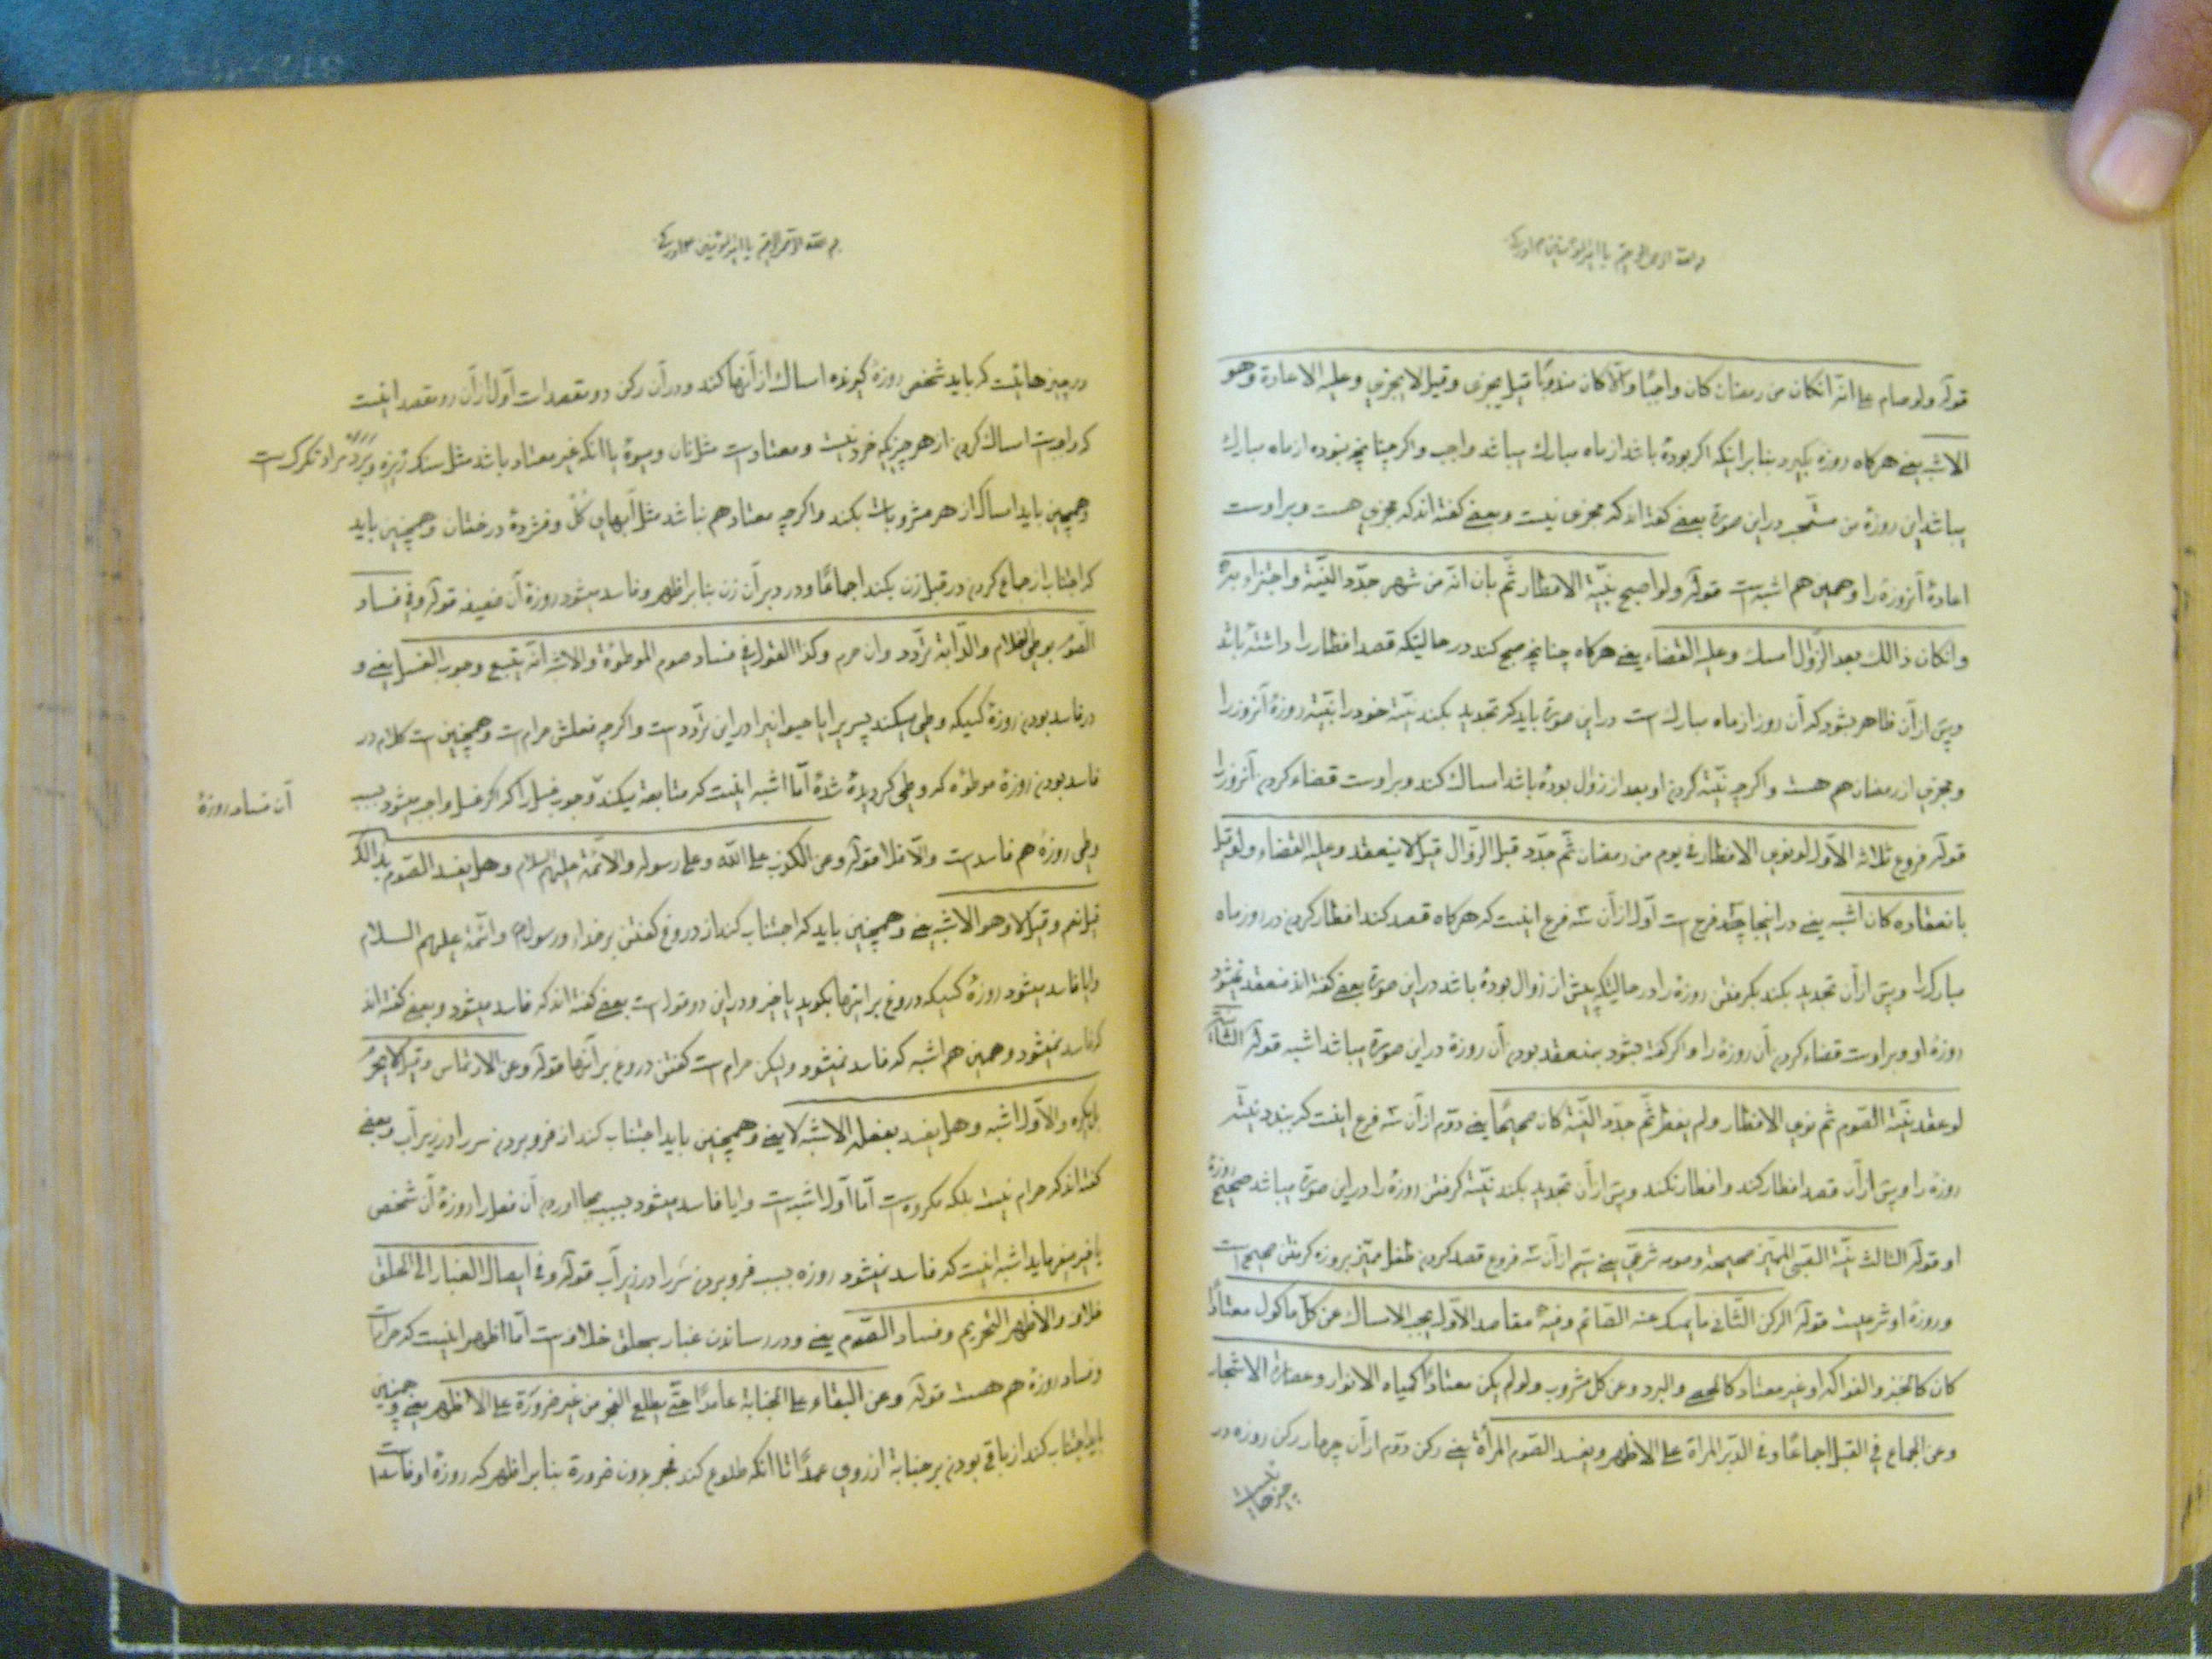 قوله ولو صام علی انه انکان من رمضان کان واجبًا والّا کان مندوبًا قیل یجزی وقیل لا یجزی وعلیه الاعادة وهو
الاشبه یعنے هرکاه روزه بکیرد بنابر اینکه اکر بودهٔ باشد از ماه مبارك میباشد واجب واکر چنانچه نبوده از ماه مبارك
میباشد این روزهٔ من مستحبّ در این صورة بعضے کفته اند که مجزی نیست وبعضے کفته اند که مجزی هست وبر اوست
اعادهٔ آنروزه را وهمین هم اشبه است قوله ولو اصبح بنیّة الافطار ثمّ بان انّه من شهر جدّد النیّة واجتزاء به
وانکان ذالك بعد الزّوال امسك وعلیه القضاء یعنے هرکاه چنانچه صبح کند در حالتیکه قصد افطار را داشتهٔ باشد
وپس از آن ظاهر بشود که آن روز از ماه مبارك است در این صورة باید که تجدید بکند نیّة خود را بنیّة روزهٔ آنروز را
ومجزی از رمضان هم هست واکر چه نیّة کردن او بعد از زوال بودهٔ باشد امساك کند وبر اوست قضاء کردن آنروز را
قوله فروع ثلاثه الاوّل لو نوی الافطار فی یوم من رمضان ثمّ جدّد قبل الزّوال قیل لا ینعقد وعلیه القضاء ولو قیل
بانعقاده کان اشبه یعنے در اینجا چند فرع است اوّل از آن سه فرع اینست که هرکاه قصد کند افطار کردن در روز ماه
مبارك را وپس از آن تجدید بکند بکرفتن روزه را در حالتیکه پیش از زوال بودهٔ باشد در این صورة بعضے کفته اند منعقد نمیشود
روزهٔ او وبر اوست قضاء کردن آن روزه را واکر کفته بشود بمنعقد بودن آن روزه در این صورة میباشد اشبه قوله الثانیة
لو عقد نیّة الصّوم ثم نوی الافطار ولم یفطر ثمّ جدّد النیّة کان صحیحًا یعنے دوّم از آن سه فرع اینست که ببندد نیّت
روزه را وپس از آن قصد افطار کند وافطار نکند وپس از آن تجدید بکند نیّة کرفتن روزه را در این صورة میباشد صحیح روزهٔ
او قوله الثالث نیّة الصّبی الممیّز صحیحة وصومه شرعیّ یعنے سیّم از آن سه فروع قصد کردن طفل ممیّز بروزه کرفتن صحیح است
وروزهٔ او شرعیست قوله الرکن الثّانی ما یمسك عنه الصّائم وفیه مقاصد الاوّل یجب الامساك عن کلّ ماکول معتادًا
کان کالخبز والفواکه او غیر معتاد کالحصی والبرد وعن کل مشروب ولو لم یکن معتادًا کمیاه الانوار وعصارة الاشجار
وعن الجماع فی القبل اجماعًا وفی الدّبر المراة علی الاظهر ویفسد الصّوم المرأة یعنے رکن دوّم از آن چهار رکن روزه در
در چیزهائیست که باید شخص روزه کیرنده امساك از آنها کند ودر آن رکن دو مقصد است اوّل از آن دو مقصد اینست
که واجبست امساك کردن از هر چیزیکه خوردنیست ومعتاد است مثل نان ومیوهٔ یا آنکه غیر معتاد باشد مثل سنك ریزه وبَرَد مراد تکرك است
وهمچنین باید امساك از هر مشروبات بکند واکر چه معتاد هم نباشد مثل آبهای کُل وفشردهٔ درختان وهمچنین باید
که اجتناب از جماع کردن در قبل زن بکند اجماعًا ودر دبر آن زن بنابر اظهر وفاسد میشود روزهٔ آن ضعیفه قوله وفی فساد
الصّوم بوطی الغلام والدّابّة تردّد وان حرم وکذا القول فی فساد صوم الموطوءة والاشبه انّه یتبع وجوب الغسل یعنے و
در فاسد بودن روزهٔ کسیکه وطی میکند پسر یرا یا حیوانیرا در این تردّد است واکر چه فعلش حرام است وهمچنین است کلام در
فاسد بودن روزهٔ موطوءه که وطی کردیده شدهٔ امّا اشبه اینست که متابعة میکند وجوب غسل را که اکر غسل واجب میشود بسبب
آن فساد روزهٔ
وطی روزه هم فاسد است والّا فلا قوله وعن الکذب علی اللّه وعلی رسوله والائمّة علیهم السلام وهل یفسد الصّوم بذالك
قیل نعم وقیل لا وهو الاشبه یعنے وهمچنین باید که اجتناب کند از دروغ کفتن بر خدا ورسول وائمّة علیهم السلام
وایا فاسد میشود روزهٔ کسیکه دروغ بر اینها بکوید یا خیر ودر این دو قول است بعضے کفته اند که فاسد میشود وبعضے کفته اند
که فاسد نمیشود وهمین هم اشبه که فاسد نمیشود ولیکن حرام است کفتن دروغ بر آنها قوله وعن الارتماس وقیل لا یحرم
بل یکره والاوّل اشبه وهل یفسد بفعله الاشبه لا یعنے وهمچنین باید اجتناب کند از فرو بردن سر را در زیر آب وبعضے
کفته اند که حرام نیست بلکه مکروه است امّا اوّل اشبه است وایا فاسد میشود بسبب بجا اوردن آن فعل را روزهٔ آن شخص
یا خیر میفرماید اشبه اینست که فاسد نمیشود روزه بسبب فرو بردن سَر را در زیر آب قوله وفی ایصال الغبار الی الحلق
خلاف والاظهر التحریم وفساد الصّوم یعنے ودر رساندن غبار بحلق خلاف است امّا اظهر اینست که حرام است
وفساد روزه هم هست قوله وعن البقاء علی الجنابة عامدًا حتّی یطلع الفجر من غیر ضرورة علی الاظهر یعنے وهمچنین
باید اجتناب کند از باقی بودن بر جنابة از روی عمدًا تا آنکه طلوع کند فجر بدون ضرورة بنابر اظهر که روزهٔ او فاسد است